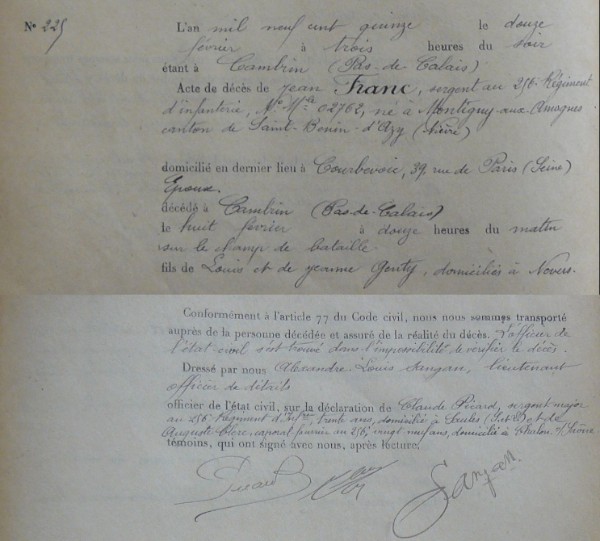 N° 225
L'an mil neuf cent quinze le douze
février à trois heures du soir
étant à Cambrin (Pas-de-Calais)
Acte de décès de Jean Franc, sergent au 256e Régiment
d'infanterie, N° Mle 02762, né à Montigny-aux-Amognes
canton de Saint-Benin-d'Azy (Nièvre)
domicilié en dernier lieu à Courbevoie, 39, rue de Paris (Seine)
Epoux.
décédé à Cambrin (Pas-de-Calais)
le huit février à douze heures du matin
sur le champ de bataille
fils de Louis et de Jeanne Genty, domiciliés à Nevers.
Conformément à l'article 77 du Code civil, nous nous sommes transporté
auprès de la personne décédée et assuré de la réalité du décès. L'officier de
l'état-civil s'est trouvé dans l'impossibilité de vérifier le décès.
Dressé par nous Alexandre Louis Sanjan, lieutenant
officier de détails
officier de l'état civil, sur la déclaration de Claude Picard, sergent major
au 256e Régiment d'Infrie, trente ans, domicilié à et de
Auguste Clerc, caporal fourrier au 256, vingt neuf ans, domicilié à s/Saône
témoins, qui ont signé avec nous, après lecture.
Picard Sanjan.